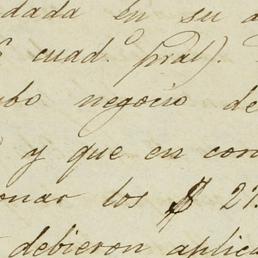 dada en su a
cuad.º pral).
bo negocio de
y que en con
onar los $ 27
debieron aplica